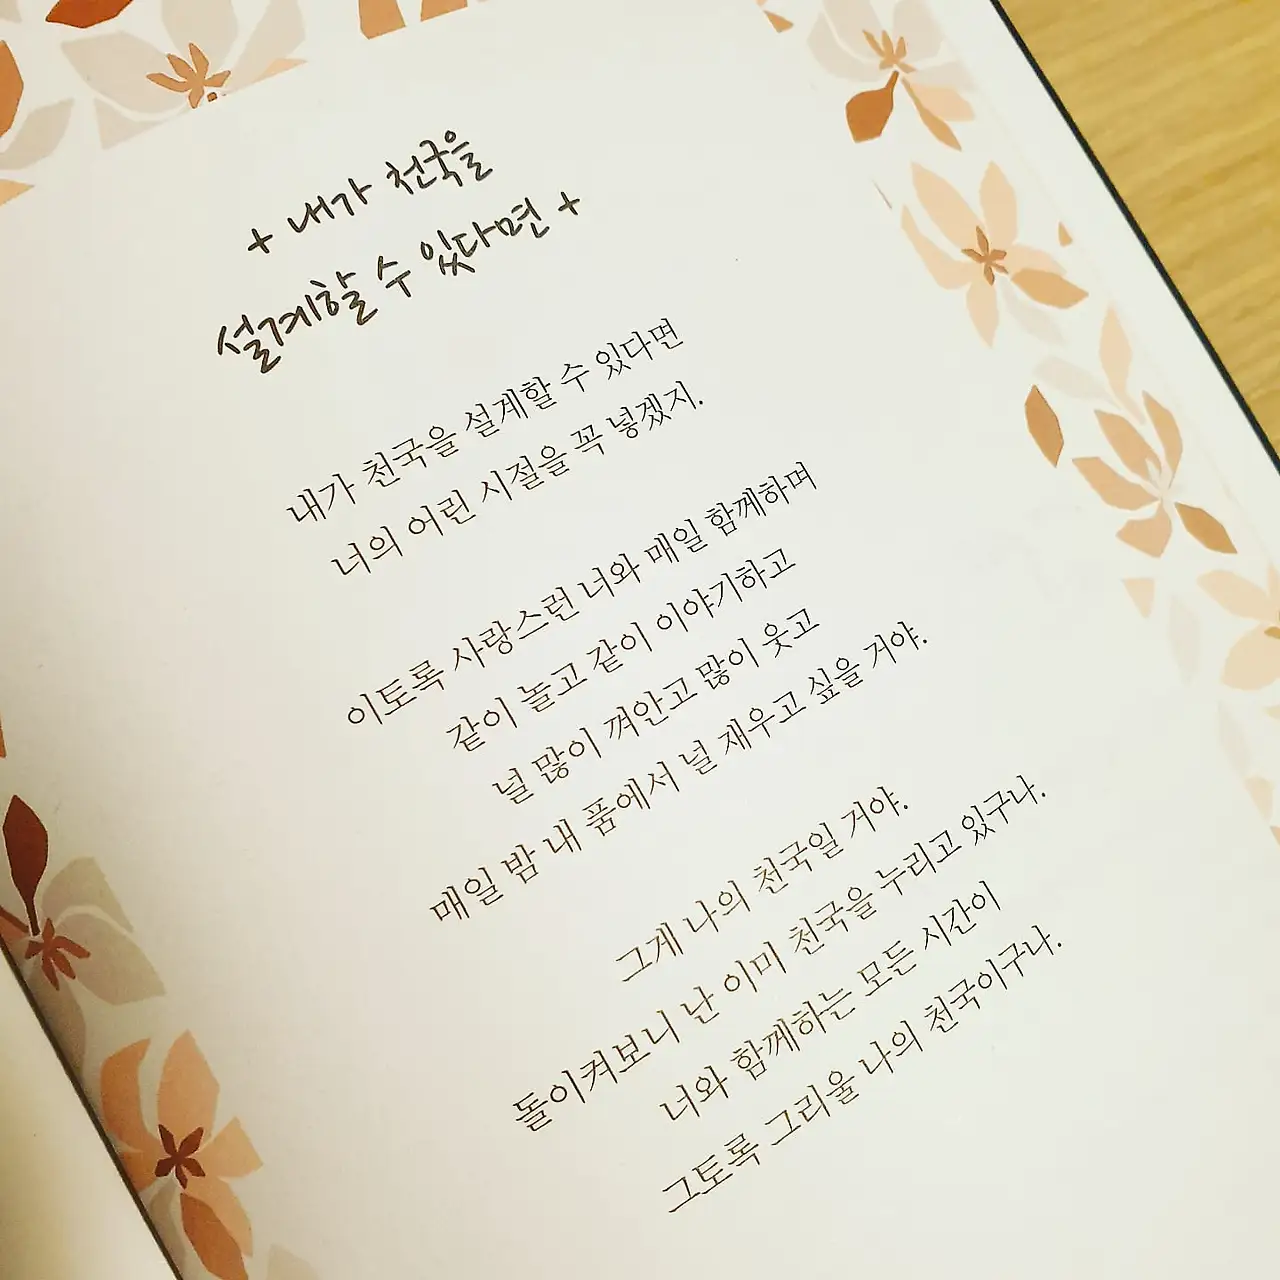 + 내가 천국을
설계할 수 있다면 +
내가 천국을 설계할 수 있다면
너의 어린 시절을 꼭 넣겠지.
이토록 사랑스런 너와 매일 함께하며
같이 놀고 같이 이야기하고
널 많이 껴안고 많이 웃고
매일 밤 내 품에서 널 재우고 싶을 거야.
그게 나의 천국일 거야.
돌이켜보니 난 이미 천국을 누리고 있구나.
너와 함께하는 모든 시간이
그토록 그리울 나의 천국이구나.